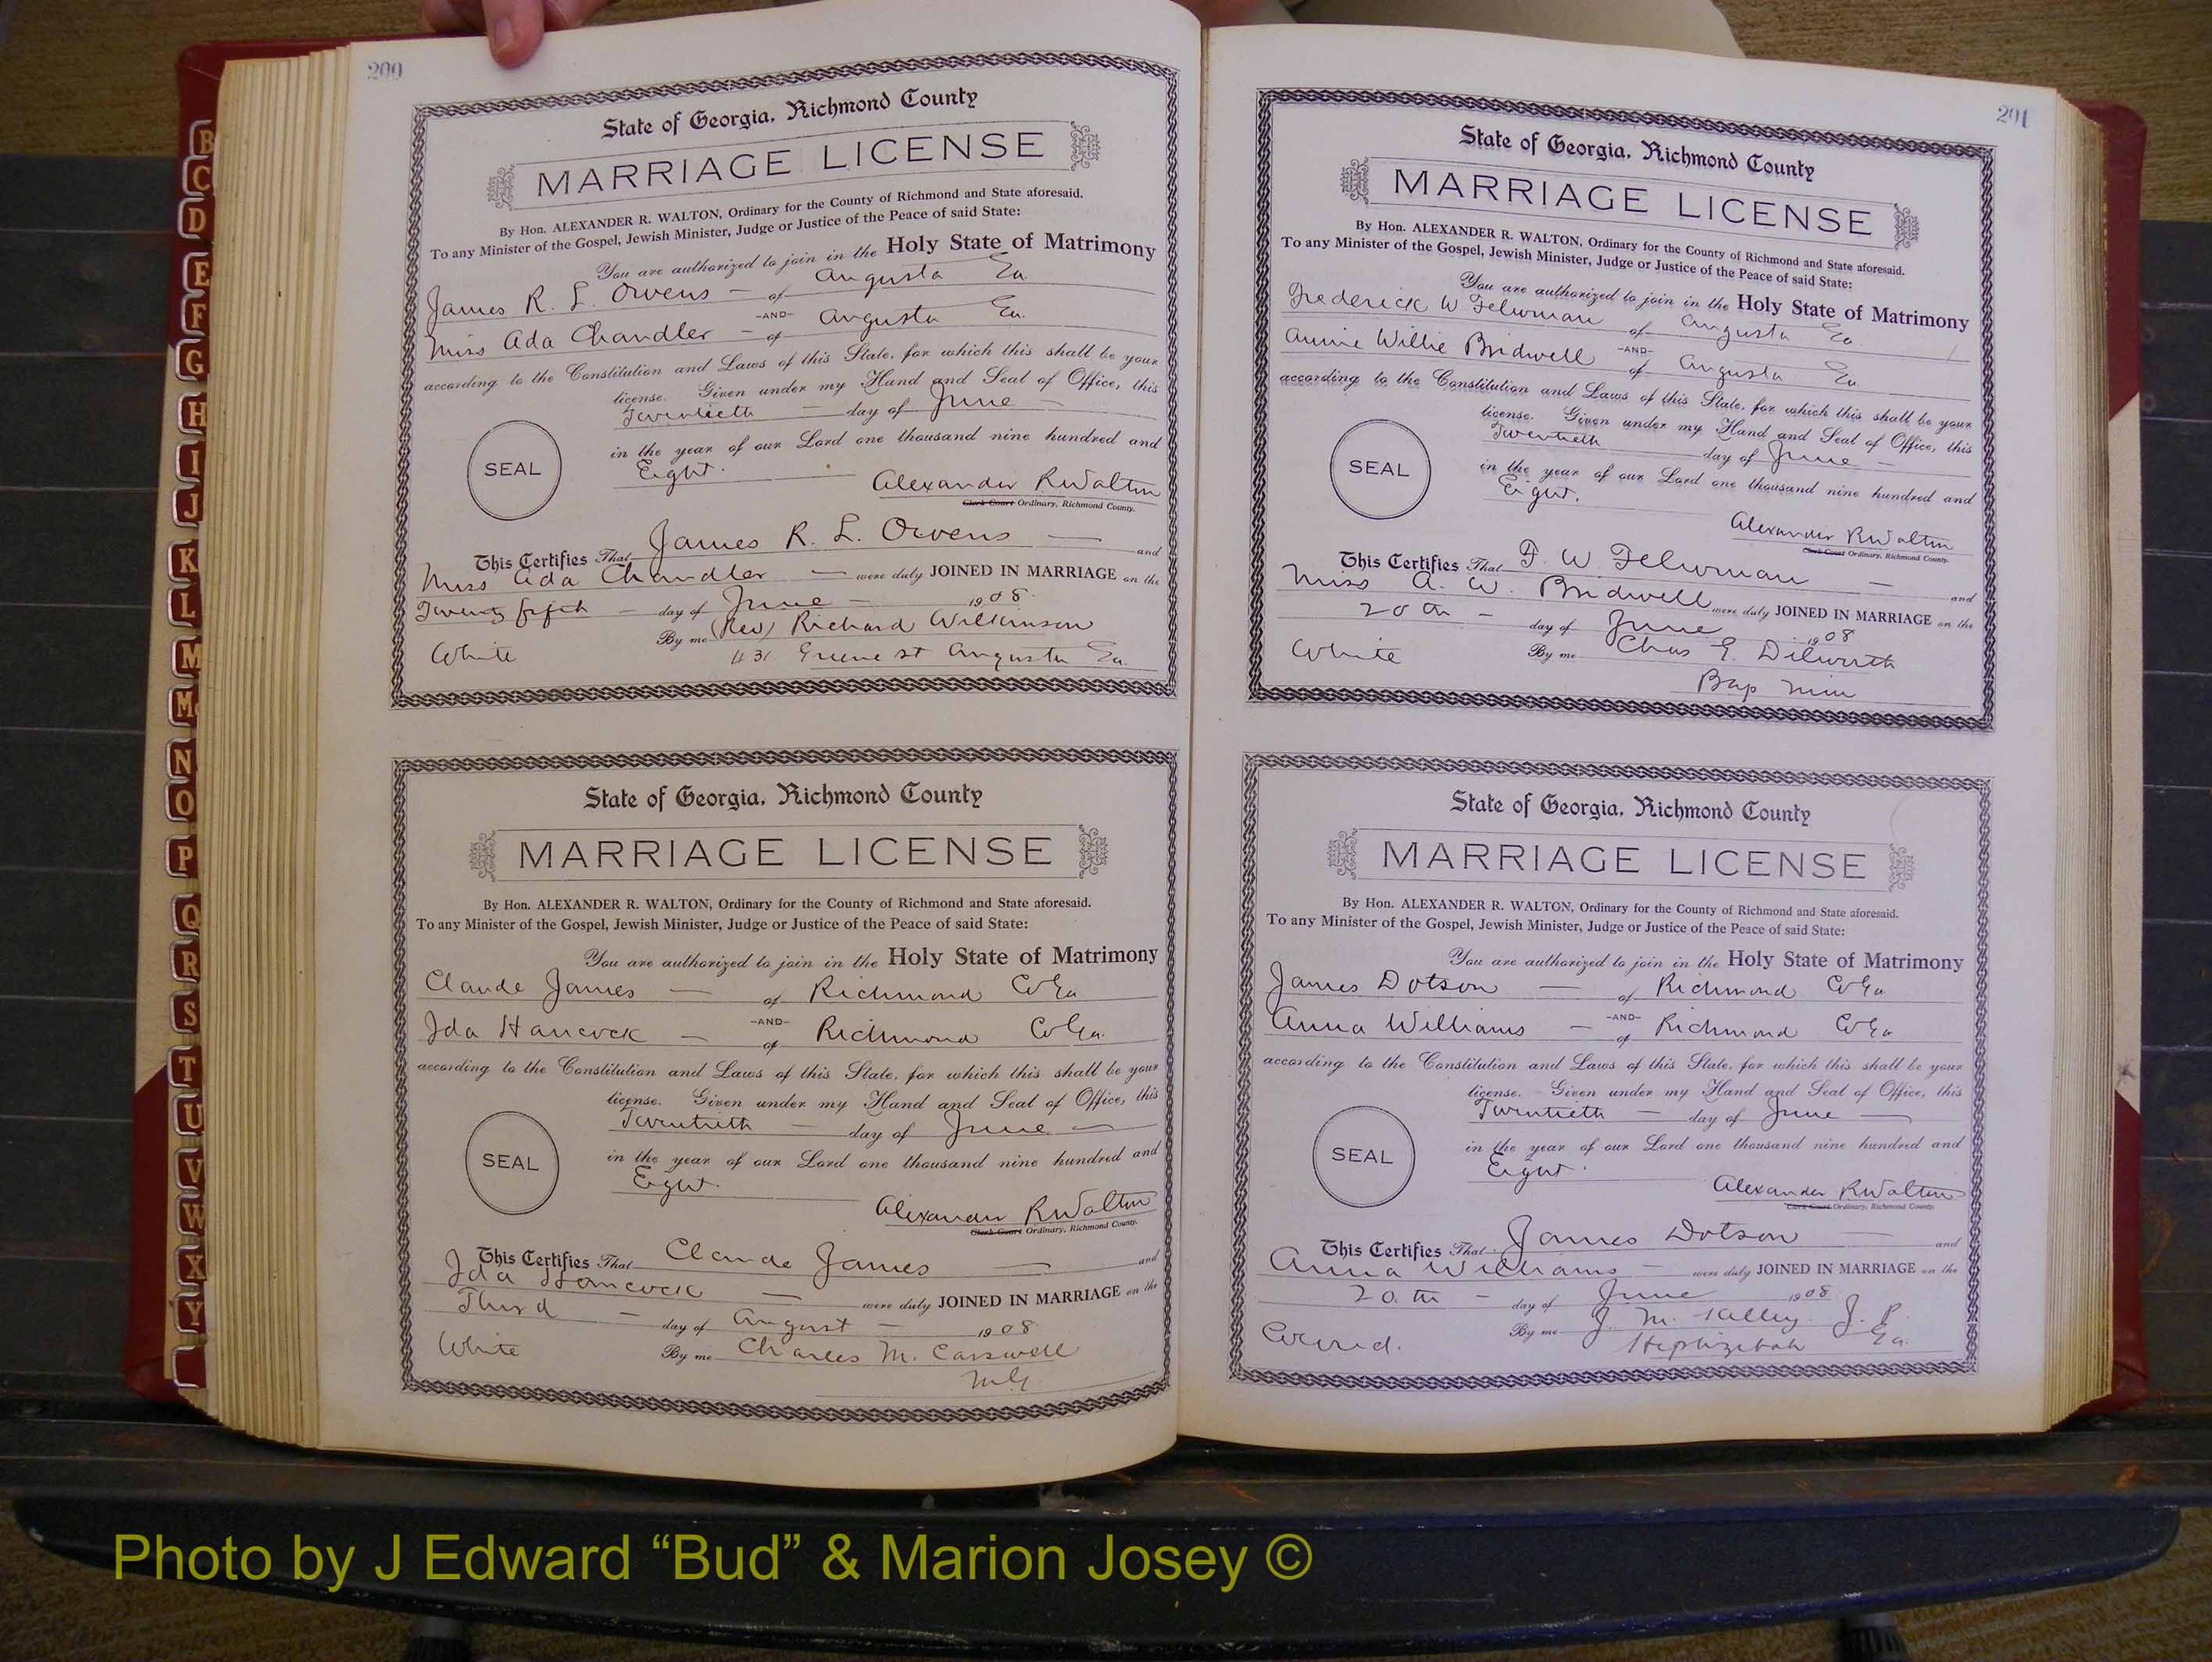 B
C
D
E
F
G
H
I
J
K
L
M
Mc
N
O
P
Q
R
S
T
U
V
W
X
Y
200
State of Georgia, Richmond County
MARRIAGE LICENSE
By Hon. ALEXANDER R. WALTON, Ordinary for the County of Richmond and State aforesaid.
To any Minister of the Gospel, Jewish Minister, Judge or Justice of the Peace of said State:
You are authorized to join in the Holy State of Matrimony
James R. L. Owens – of Augusta Ga
-AND-
Miss Ada Chandler – of Augusta Ga.
according to the Constitution and Laws of this State, for which this shall be your
license. Given under my Hand and Seal of Office, this
Twentieth – day of June –
in the year of our Lord one thousand nine hundred and
SEAL
Eight.
Alexander R Walton
Clerk Court Ordinary, Richmond County.
This Certifies That James R. L. Owens – and
Miss Ada Chandler – were duly JOINED IN MARRIAGE on the
Twenty fifth – day of June – 1908.
By me (Rev) Richard Wilkinson
White 431 Greene st Augusta Ga.
State of Georgia, Richmond County
MARRIAGE LICENSE
By Hon. ALEXANDER R. WALTON, Ordinary for the County of Richmond and State aforesaid.
To any Minister of the Gospel, Jewish Minister, Judge or Justice of the Peace of said State:
You are authorized to join in the Holy State of Matrimony
Claude James – of Richmond Co Ga
-AND-
Ida Hancock – of Richmond Co Ga.
according to the Constitution and Laws of this State, for which this shall be your
license. Given under my Hand and Seal of Office, this
Twentieth – day of June –
in the year of our Lord one thousand nine hundred and
SEAL
Eight.
Alexander R Walton
Clerk Court Ordinary, Richmond County.
This Certifies That Claude James – and
Ida Hancock – were duly JOINED IN MARRIAGE on the
Third – day of August – 1908.
White By me Charles M. Carswell
M.G.
201
State of Georgia, Richmond County
MARRIAGE LICENSE
By Hon. ALEXANDER R. WALTON, Ordinary for the County of Richmond and State aforesaid.
To any Minister of the Gospel, Jewish Minister, Judge or Justice of the Peace of said State:
You are authorized to join in the Holy State of Matrimony
Frederick W of Augusta Ga
-AND-
Annie Willie Bridwell of Augusta Ga
according to the Constitution and Laws of this State, for which this shall be your
license. Given under my Hand and Seal of Office, this
Twentieth day of June –
in the year of our Lord one thousand nine hundred and
SEAL
Eight.
Alexander R Walton
Clerk Court Ordinary, Richmond County.
This Certifies That F. W. – and
Miss A. W. Bridwell were duly JOINED IN MARRIAGE on the
20th – day of June 1908
White By me Chas E. Dilworth
Bap Min
State of Georgia, Richmond County
MARRIAGE LICENSE
By Hon. ALEXANDER R. WALTON, Ordinary for the County of Richmond and State aforesaid.
To any Minister of the Gospel, Jewish Minister, Judge or Justice of the Peace of said State:
You are authorized to join in the Holy State of Matrimony
James Dotson – of Richmond Co Ga
-AND-
Anna Williams – of Richmond Co Ga
according to the Constitution and Laws of this State, for which this shall be your
license. Given under my Hand and Seal of Office, this
Twentieth – day of June –
in the year of our Lord one thousand nine hundred and
SEAL
Eight.
Alexander R Walton
Clerk Court Ordinary, Richmond County.
This Certifies That James Dotson – and
Anna Williams – were duly JOINED IN MARRIAGE on the
20th – day of June 1908
By me J. M. Kelley. J. P.
Hephzibah Ga.
Photo by J Edward “Bud” & Marion Josey ©